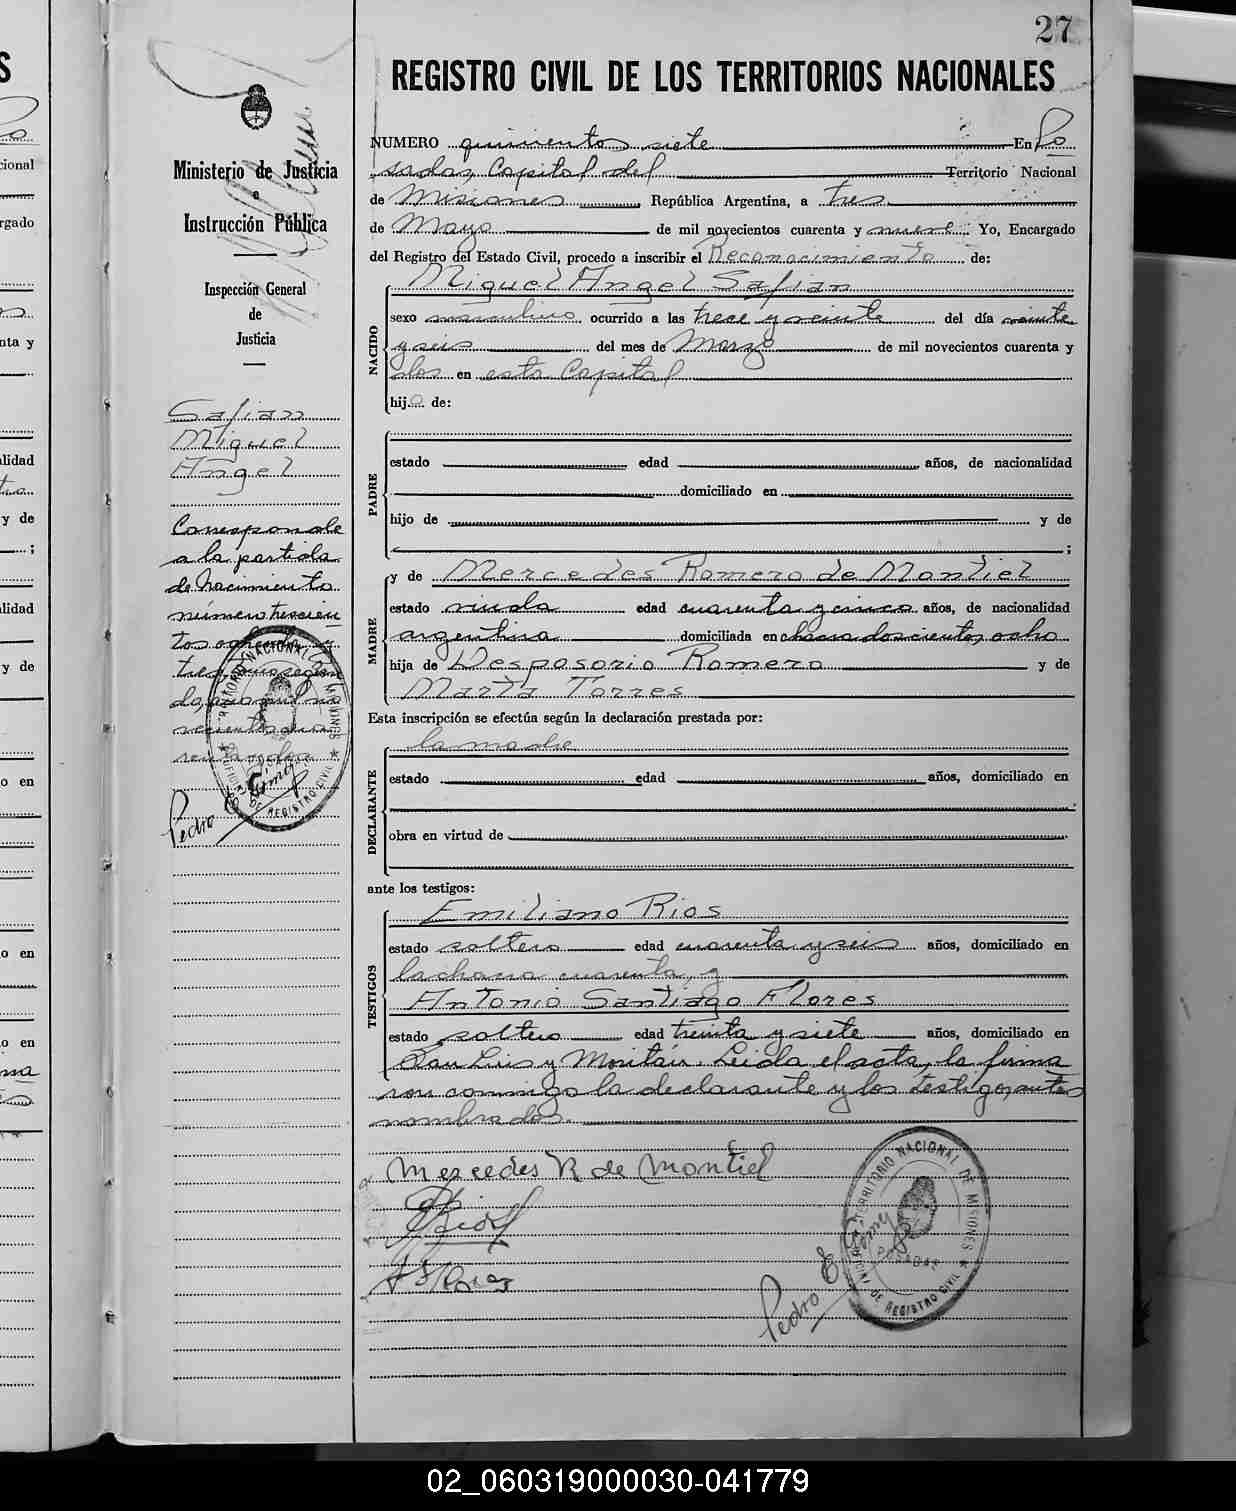 27
REGISTRO CIVIL DE LOS TERRITORIOS NACIONALES
Ministerio de Justicia
e
Instrucción Pública
Inspección General
de
Justicia
Safian
Miguel
Angel
Corresponde
a la partida
de Nacimiento
número trescien
tos ochenta y
tres
Pedro E. Gómez
NUMERO quinientos siete En Po
sadas, Capital del Territorio Nacional
de Misiones República Argentina, a tres
de Mayo de mil novecientos cuarenta y nueve Yo, Encargado
del Registro del Estado Civil, procedo a inscribir el Reconocimiento de:
Miguel Angel Safian
NACIDO
sexo masculino ocurrido a las trece y veinte del día veinte
y seis del mes de Marzo de mil novecientos cuarenta y
dos en esta Capital
hijo de:
PADRE
estado edad años, de nacionalidad
domiciliado en
hijo de y de
;
MADRE
y de Mercedes Romero de Montiel
estado viuda edad cuarenta y cinco años, de nacionalidad
argentina domiciliada en chacra doscientos ocho
hija de Desposorio Romero y de
Marta Torres
Esta inscripción se efectúa según la declaración prestada por:
la madre
DECLARANTE
estado edad años, domiciliado en
obra en virtud de
ante los testigos:
TESTIGOS
Emiliano Rios
estado soltero edad cuarenta y seis años, domiciliado en
la chacra cuarenta, y
Antonio Santiago Flores
estado soltero edad treinta y siete años, domiciliado en
San Luis y Moritán. Leida el acta, la firma
ron conmigo la declarante y los testigos antes
nombrados.
Mercedes R de Montiel
E Rios
Pedro E. Gómez
TERRITORIO NACIONAL DE MISIONES
POSADAS
OFICINA DE REGISTRO CIVIL
02_060319000030-041779